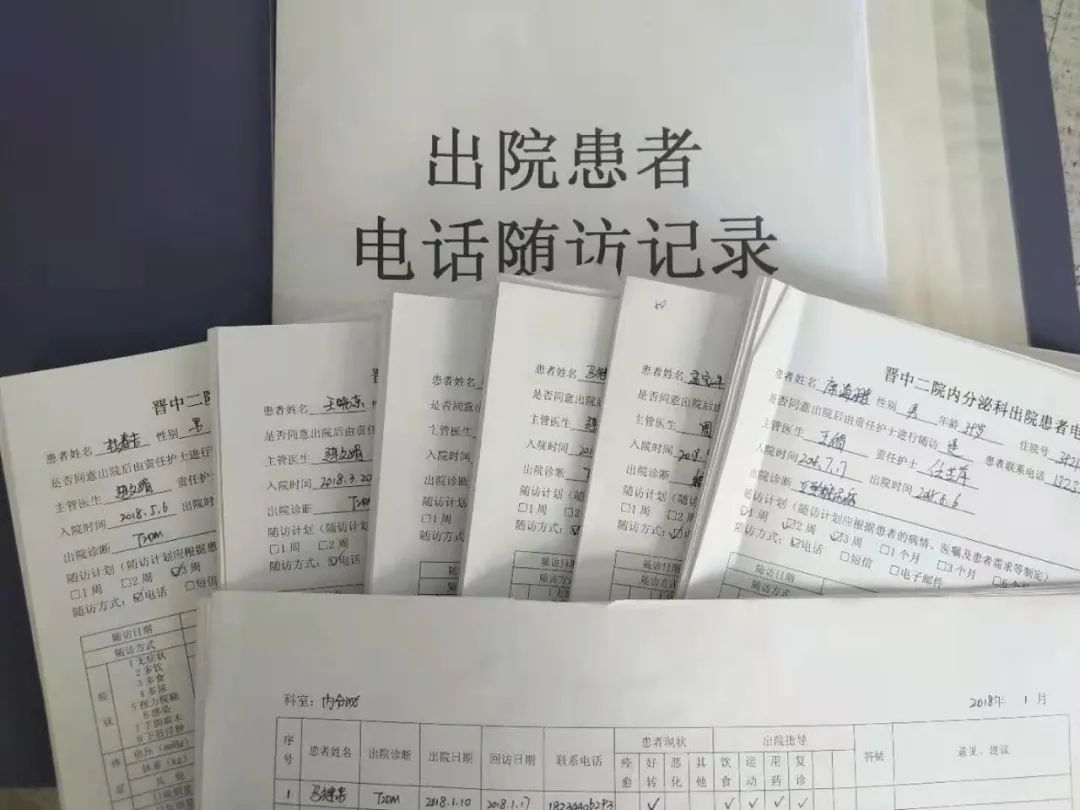 出院患者
电话随访记录
晋中二院
患者姓名 性别 男
是否同意出院后由责任护士进行
主管医生 责任护
入院时间 2018.5.6 出院时
出院诊断 T2DM
随访计划（随访计划应根据患
□1周 □2周 ☑3周
随访方式：☑电话 □短信
随访日期
随访方式
症状
1 无症状
2 多饮
3 多食
4 多尿
5 视力模糊
6 感染
7 下肢麻木
8 下肢浮肿
体
血压（mmHg）
体重（kg）
其他
患者姓名 王晓东
是否同意出院后由责
主管医生
入院时间 2018.3.20
出院诊断 T2DM
随访计划（随访计
□1周 □2周
随访方式：☑电
患者姓名
是否同意出
主管医生
入院时间
出院诊断
随访计划
□1周
随访方式
患者姓名
是否同意出
主管医生
入院时间
出院诊断
随访计划（随
□1周 □2
随访方式：☑
随访日期
患者姓名
是否同意出院后
主管医生 周
入院时间
出院诊断
随访计划（随
□1周 □2周
随访方式：
晋中二院内分泌科出院患者电
患者姓名 性别 男 年龄 住院号
是否同意出院后由责任护士进行随访 是 患者联系电话
主管医生 王娟 责任护士
入院时间 出院时间
出院诊断
随访计划（随访计划应根据患者的病情、医嘱及患者需求等制定）
☑1周 ☑2周 ☑3周 □1个月 □3个月
随访方式：☑电话 □短信 □电子邮件
随访日期
随访方式
科室：内分泌 2018年 1月
序号 患者姓名 出院诊断 出院日期 回访日期 联系电话 患者现状 出院指导 答疑 意见、建议
痊愈 好转 恶化 其他 饮食 运动 用药 复诊
1 T2DM 2018.1.10 2018.1.17 18234406293 ✓ ✓ ✓ ✓ ✓